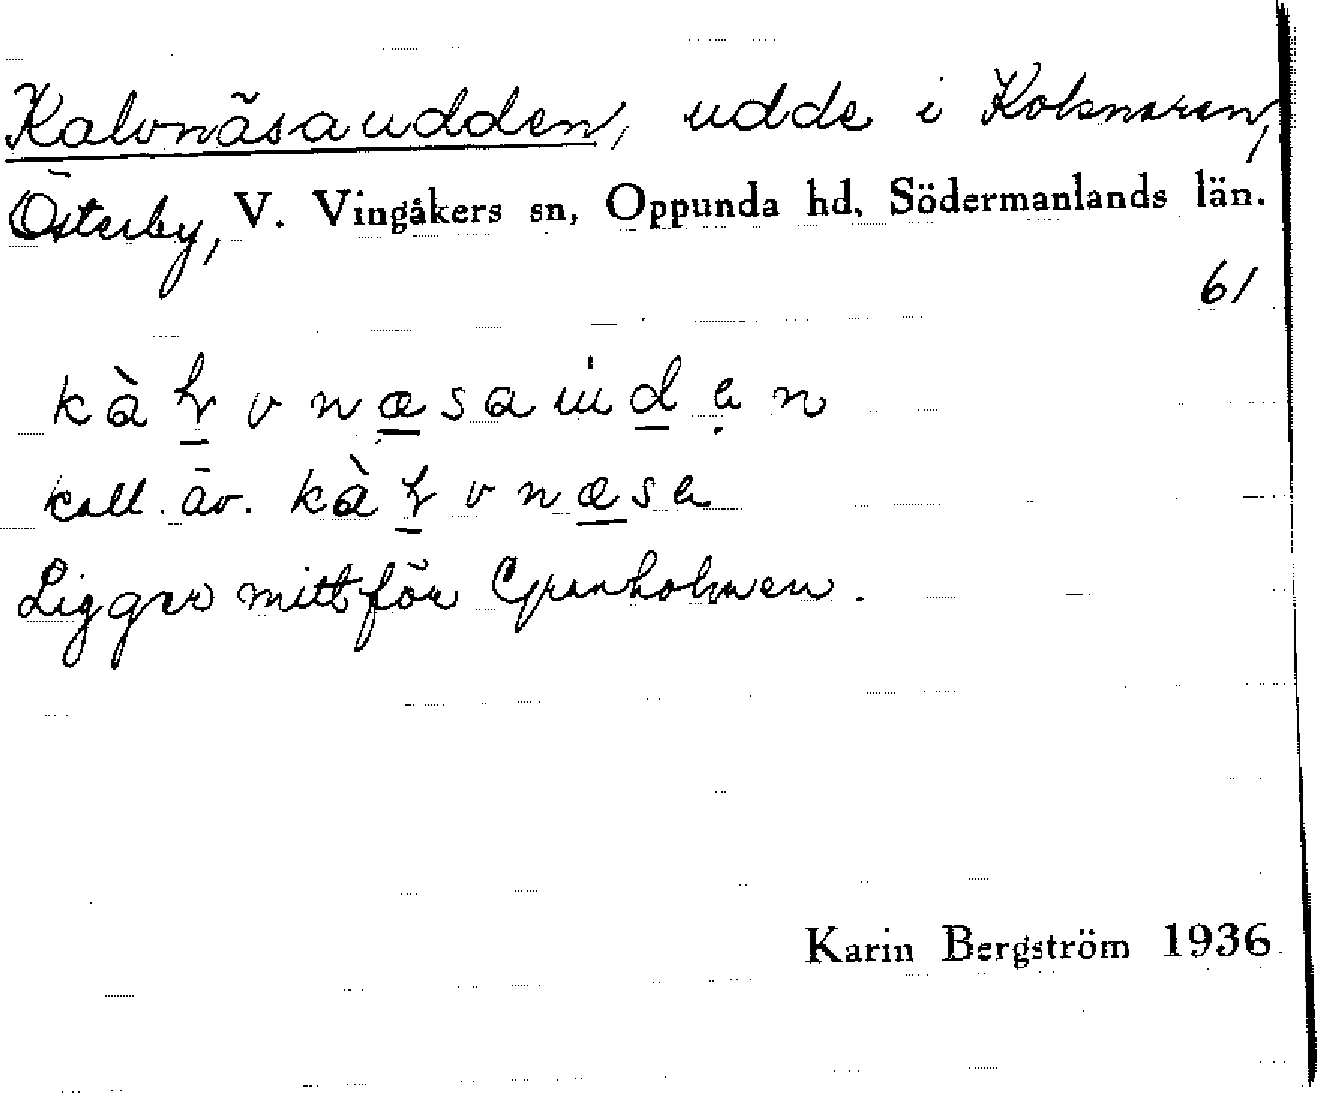 Kalvnäsaudden, udde i Kolsnaren,
Österby, V. Vingåkers sn, Oppunda hd, Södermanlands län.
61
kàɫvnæsaùdən
kall. äv. kàɫvnæsa
Ligger mitt för Granholmen.
Karin Bergström 1936